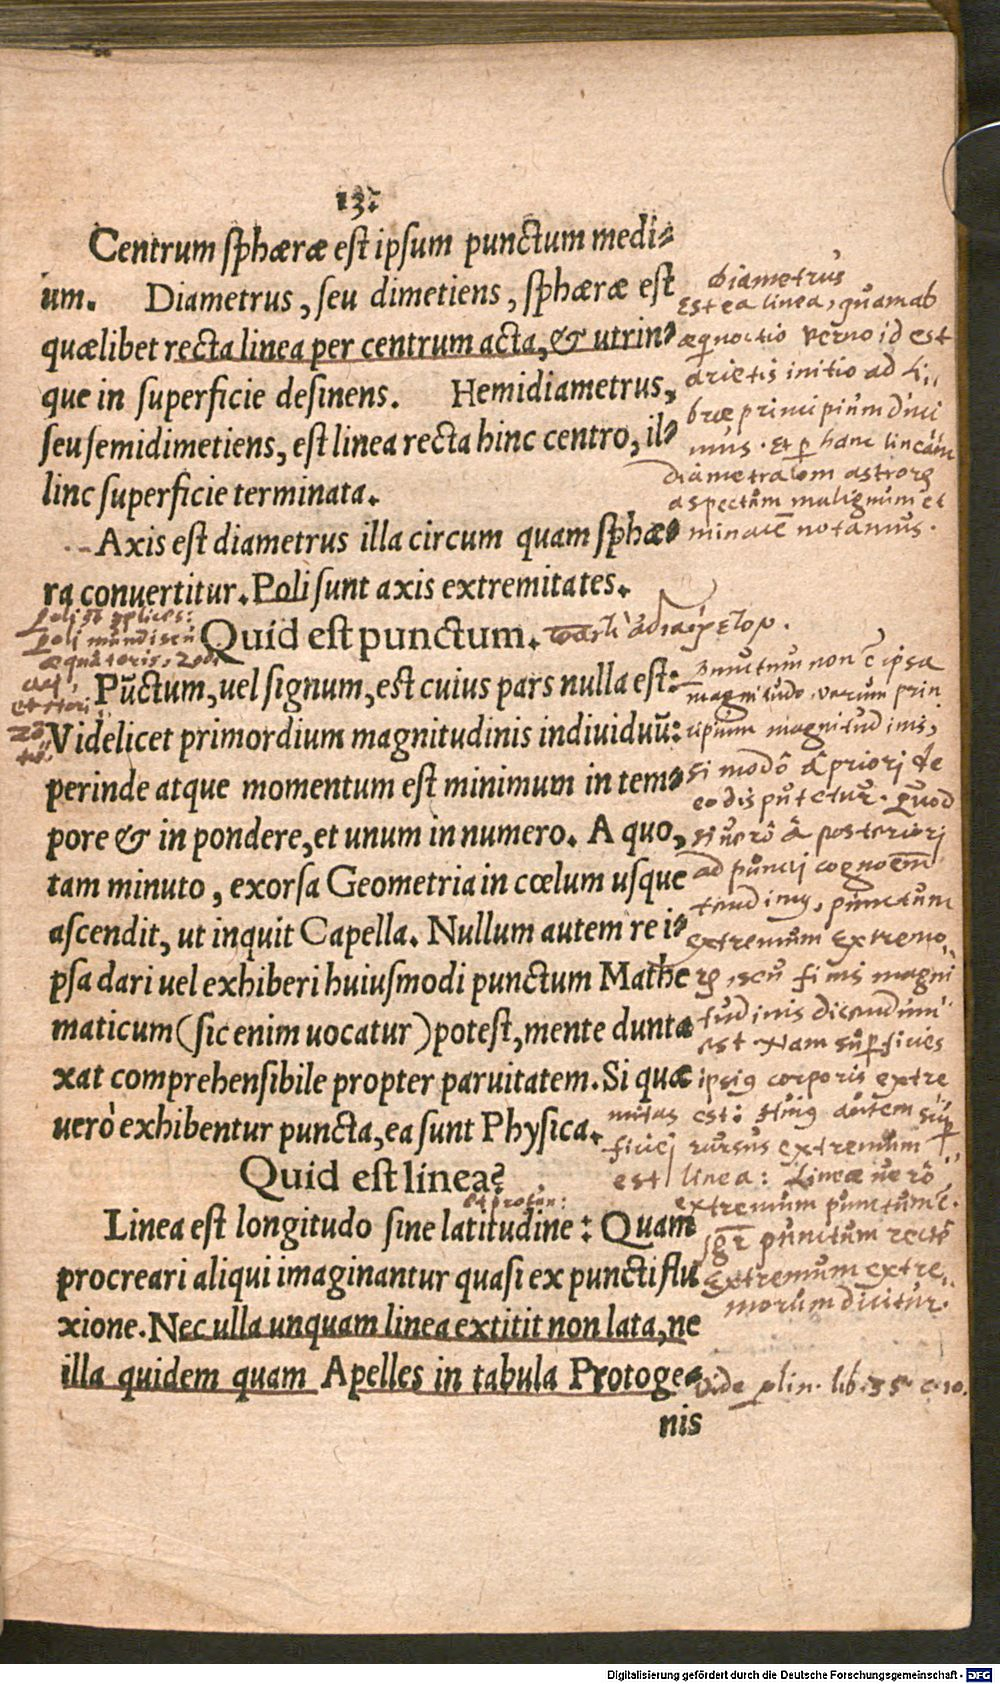 13.
Centrum sphæræ est ipsum punctum medi-
um. Diametrus, seu dimetiens, sphæræ est
quælibet recta linea per centrum acta, & utrin-
que in superficie desinens. Hemidiametrus,
seu semidimetiens, est linea recta hinc centro, il-
linc superficie terminata.
Axis est diametrus illa circum quam sphæ-
ra conuertitur. Poli sunt axis extremitates.
Quid est punctum.
Pūctum, uel signum, est cuius pars nulla est:
Videlicet primordium magnitudinis indiuiduū:
perinde atque momentum est minimum in tem-
pore & in pondere, et unum in numero. A quo,
tam minuto, exorsa Geometria in cœlum usque
ascendit, ut inquit Capella. Nullum autem re i-
psa dari uel exhiberi huiusmodi punctum Mathe
maticum (sic enim uocatur) potest, mente dunta
xat comprehensibile propter paruitatem. Si quæ
uerò exhibentur puncta, ea sunt Physica.
Quid est linea?
Linea est longitudo sine latitudine: Quam
procreari aliqui imaginantur quasi ex puncti flu
xione. Nec ulla unquam linea extitit non lata, ne
illa quidem quam Apelles in tabula Protoge-
nis
Diametrus
Est ea linea, quam ab
æquinoctio verno id est
arietis initio ad Li,,
bræ principium duci
mus. Et p hanc lineam
diametralem astrorum
aspectum malignum et
minacē notamus.
Punctum non ē ipsa
magnitudo, verum prin
cipium magnitudinis,
si modô â priori de
eo disputetur. Quod
si uerô â posteriori
ad puncti cognoēm
tendimus, punctum
extremum extremo,,
rum, seu finis magni
tudinis dicendum
est Nam superficies
ipsius corporis extre
mitas est: Huius autem sup
ficiei rursus extremum
est linea: Lineæ uerô
extremum punctum ē.
Igr punctum rectè
extremum extre,,
morum dicitur.
Vide plin. lib. 35. c. 10.
Poli mundi seu
æquatoris, Zodi
aci,
et profun:
Digitalisierung gefördert durch die Deutsche Forschungsgemeinschaft - DFG